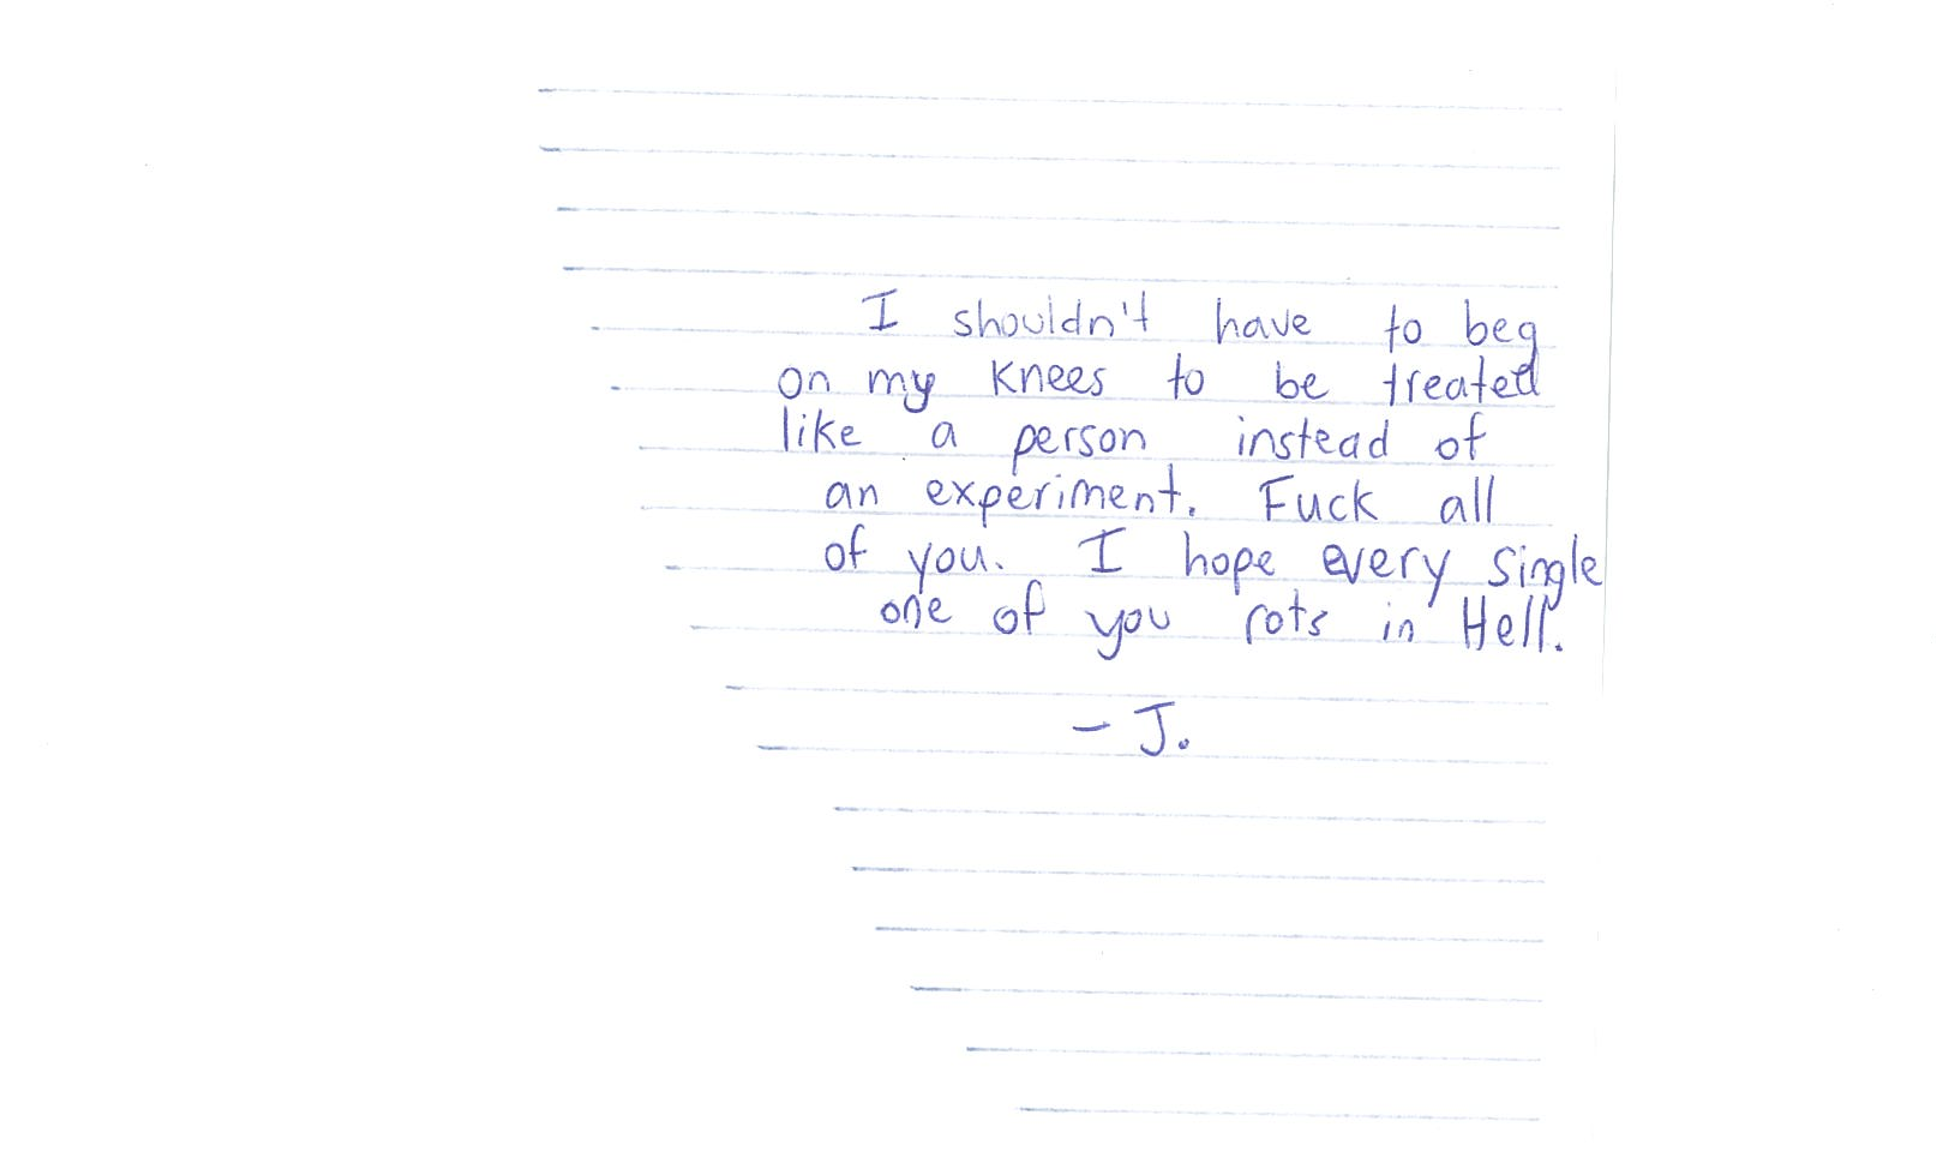 I shouldn't have to beg
on my knees to be treated
like a person instead of
an experiment. Fuck all
of you. I hope every single
one of you rots in Hell.
- J.